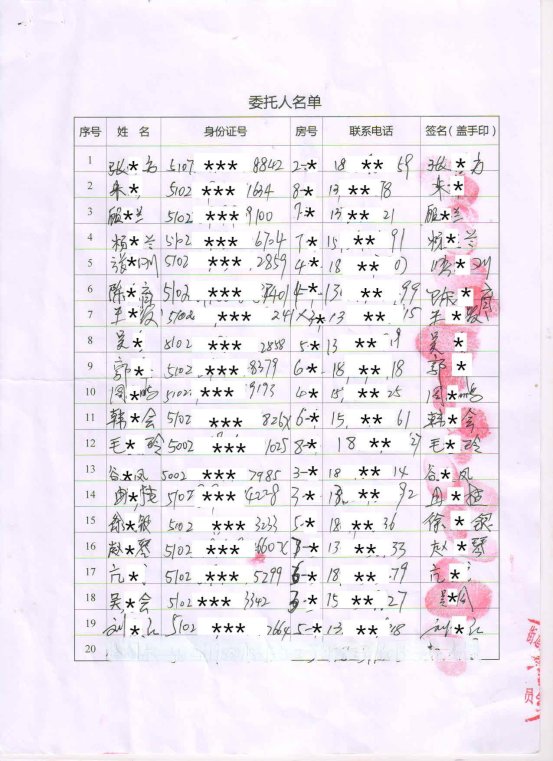 委托人名单
序号 姓 名 身份证号 房号 联系电话 签名(盖手印)
1 张*为 5107 *** 8842 2-* 18 ** 59 张*为
2 朱* 5102 *** 1634 8-* 13 ** 78 朱*
3 顾*兰 5102 *** 9100 7-* 13 ** 21 顾*兰
4 杨*兰 5102 *** 6724 7-* 15 ** 91 杨*兰
5 张*刚 5102 *** 2859 4-* 18 ** 07 *刚
6 陈*育 5102 *** 4-* 13 ** 99 陈*育
7 王* 5102 *** 13 ** 15 王*
8 吴* 5102 *** 2858 5-* 13 ** 9 吴*
9 郭* 5102 *** 8379 6-* 18 ** 18 郭*
10 周*鸣 5102 *** 9193 4-* 15 ** 25 周*鸣
11 韩*会 5102 *** 826X 6-* 15 ** 61 韩*会
12 毛*玲 5002 *** 1025 8-* 18 ** 27 毛*玲
13 谷*凤 5002 *** 7985 3-* 18 ** 14 谷*凤
14 5102 *** 4228 3-* 13 ** 92
15 徐*银 5102 *** 3233 5-* 18 ** 36 徐*银
16 赵*琴 5102 *** 607X -* 13 ** 33 赵*琴
17 亢* 5102 *** 5299 -* 18 ** 79 亢*
18 吴*会 5102 *** 3342 -* 15 ** 27 吴*会
19 刘*江 5102 *** 2664 5-* 13 ** 38 刘*江
20
员